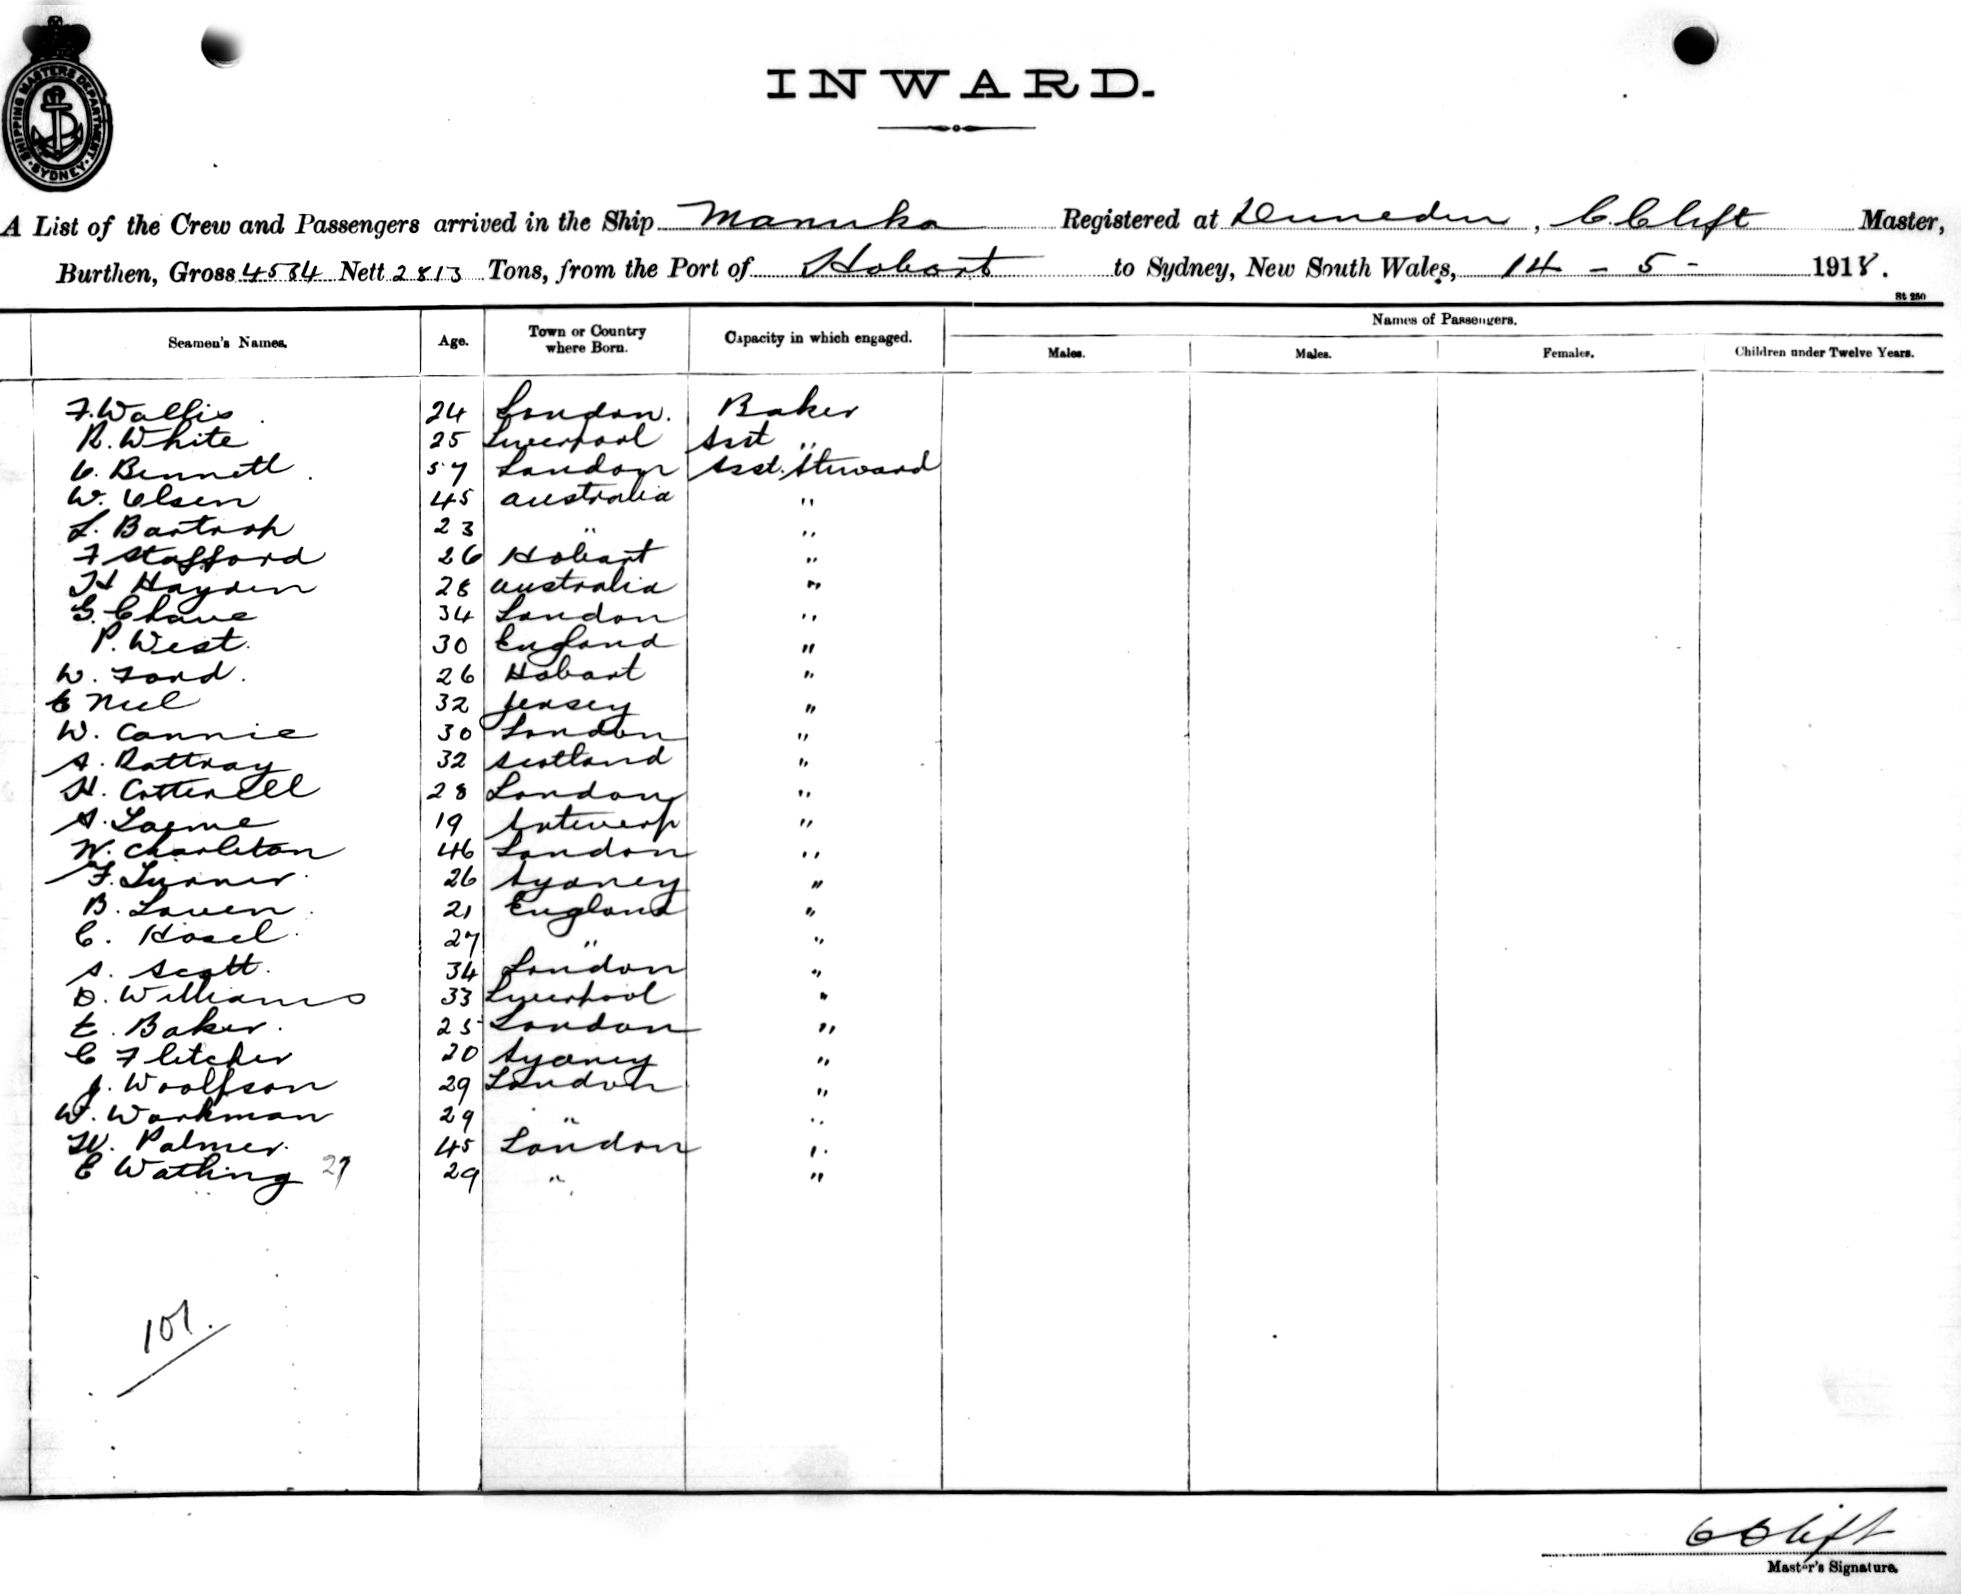 SHIPPING MASTERS DEPARTMENT SYDNEY
INWARD.
A List of the Crew and Passengers arrived in the Ship Manuka Registered at Dunedin, C. Clift Master,
Burthen, Gross 4534 Nett 2813 Tons, from the Port of Hobart to Sydney, New South Wales, 14 - 5 - 1918.
St 250
Seamen's Names. Age. Town or Country where Born. Capacity in which engaged. Names of Passengers.
Males. Males. Females. Children under Twelve Years.
F. Wallis 24 London. Baker
R. White 25 Liverpool Asst "
C. Bennett 57 London Asst. Steward
W. Olsen 45 Australia "
L. Bartrop 23 " "
F Stafford 26 Hobart "
H Hayden 28 Australia "
G. Chave 34 London "
P. West. 30 England "
W. Ford. 26 Hobart "
C Neil 32 Jersey "
W. Cannie 30 London "
A. Rattray 32 Scotland "
H. Cotterell 28 London "
A. 19 Antwerp "
W. Charleton 46 London "
F. Turner. 26 Sydney "
B. Laven 21 England "
C. Hosel. 27 " "
A. Scott. 34 London "
D. Williams 33 Liverpool "
E. Baker. 25 London "
C Fletcher 20 Sydney "
J. Woolfson 29 London "
W. Workman 29 " "
W. Palmer. 45 London "
E Watling 27 29 " "
101.
C Clift
Master's Signature.